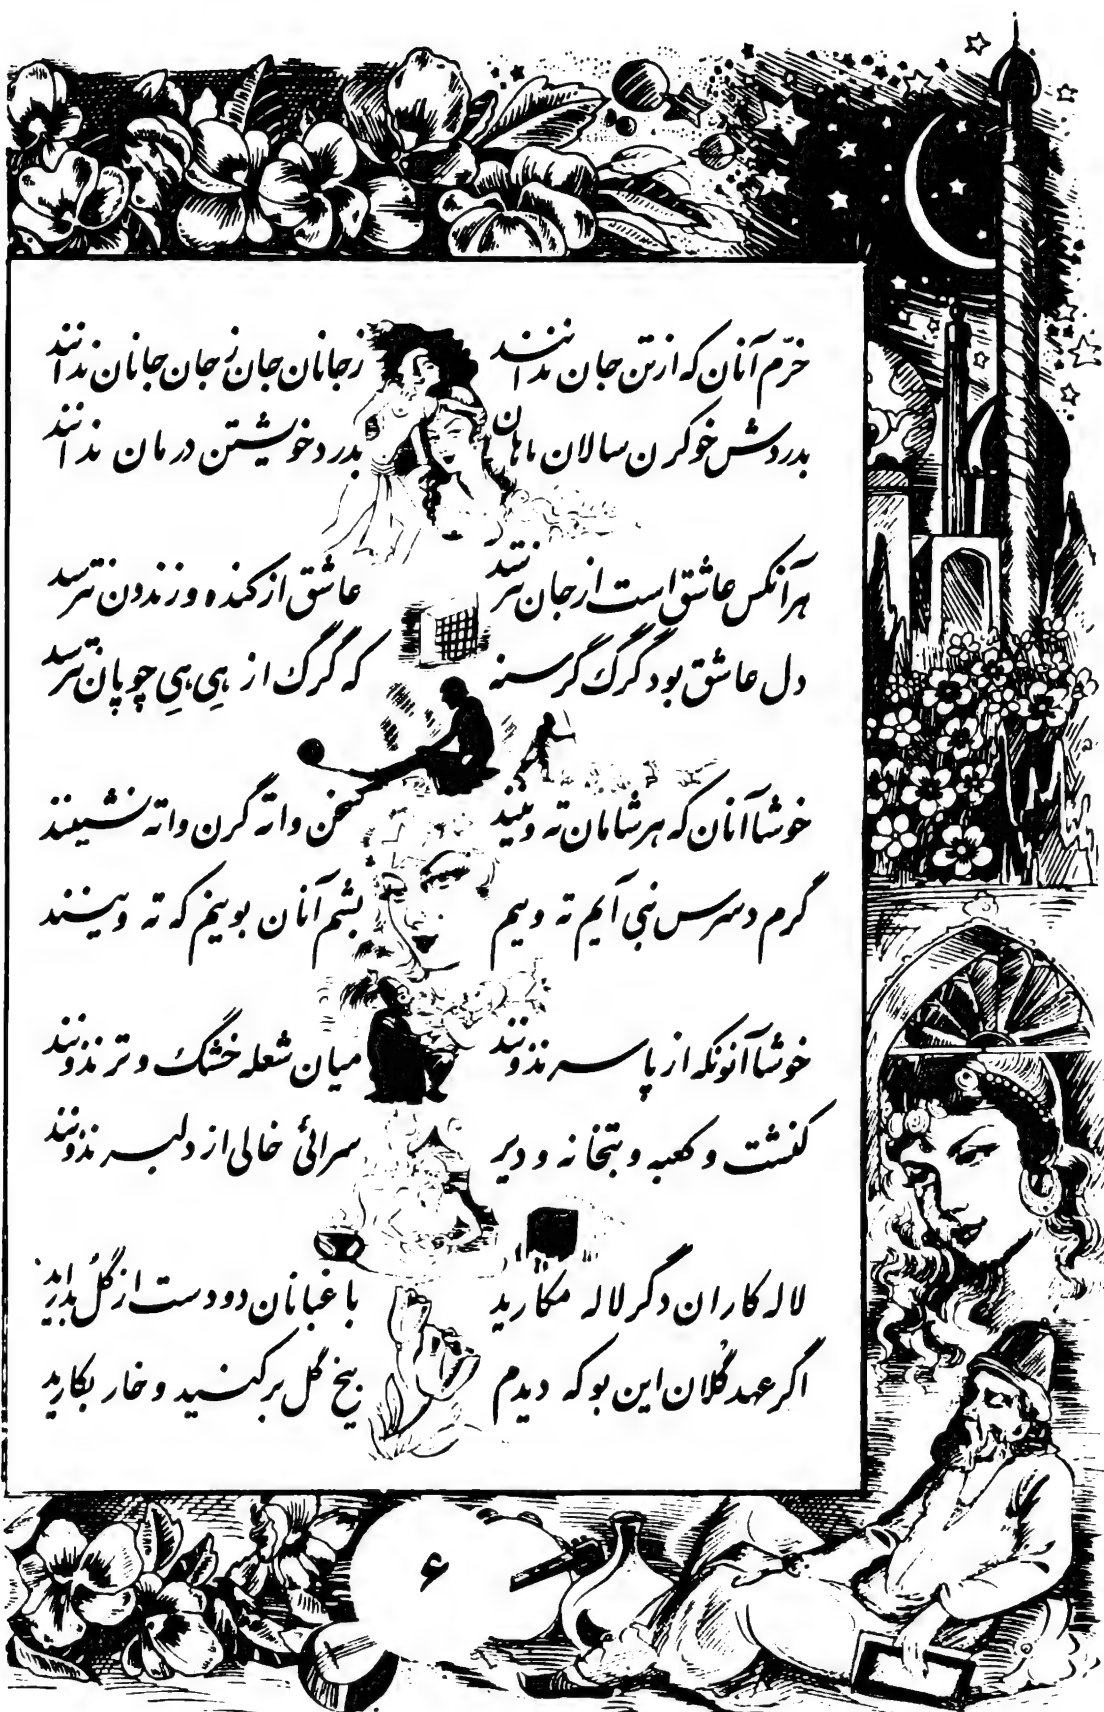 خرّم آنان که از تن جان ندانند ز جانان جان ز جان جانان ندانند
بدردش خوکرن سالان ماهان بدرد خویشتن درمان ندانند
هر آنکس عاشق است از جان نترسد عاشق از کنده و زندون نترسد
دل عاشق بود گرگ گرسنه که گرگ از هیِ هیِ چوپان نترسد
خوشا آنان که هر شامان ته وینند سخن واته گرن واته نشینند
گرم دسرس نبی آیم ته وینم بشم آنان بوینم که ته وینند
خوشا آنونکه از پا سر ندونند میان شعله خشگ و تر ندونند
کنشت و کعبه و بتخانه و دیر سرائی خالی از دلبر ندونند
لاله کاران دگر لاله مکارید باغبانان دو دست از گُل بدارید
اگر عهد گُلان این بو که دیدم بیخ گل بر کنید و خار بکارید
۶